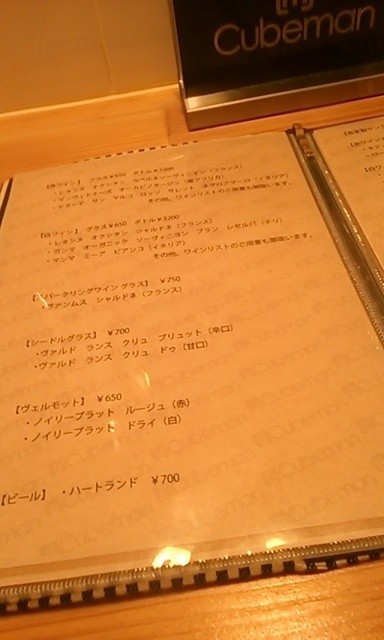 Cubeman
【赤ワイン】 グラス¥650 ボトル¥3200
・レタンヌ オクシタン カベルネソーヴィニオン（フランス）
・マンヴィントナーズ オーカピノタージュ（南アフリカ）
サン マルコ ロッソ サレント ネグロアマーロ（イタリア）
その他、ワインリストのご用意も御座います。
【白ワイン】 グラス¥650 ボトル¥3200
・レタンヌ オクシタン シャルドネ（フランス）
・ガンマ オーガニック ソーヴィニヨン ブラン レセルバ（チリ）
・マンマ ミーア ビアンコ（イタリア）
その他、ワインリストのご用意も御座います。
【スパークリングワイン グラス】 ¥750
・ヴァンムス シャルドネ（フランス）
【シードルグラス】 ¥700
・ヴァルド ランス クリュ ブリュット（辛口）
・ヴァルド ランス クリュ ドゥ（甘口）
【ヴェルモット】 ¥650
・ノイリープラット ルージュ（赤）
・ノイリープラット ドライ（白）
【ビール】 ・ハートランド ¥700